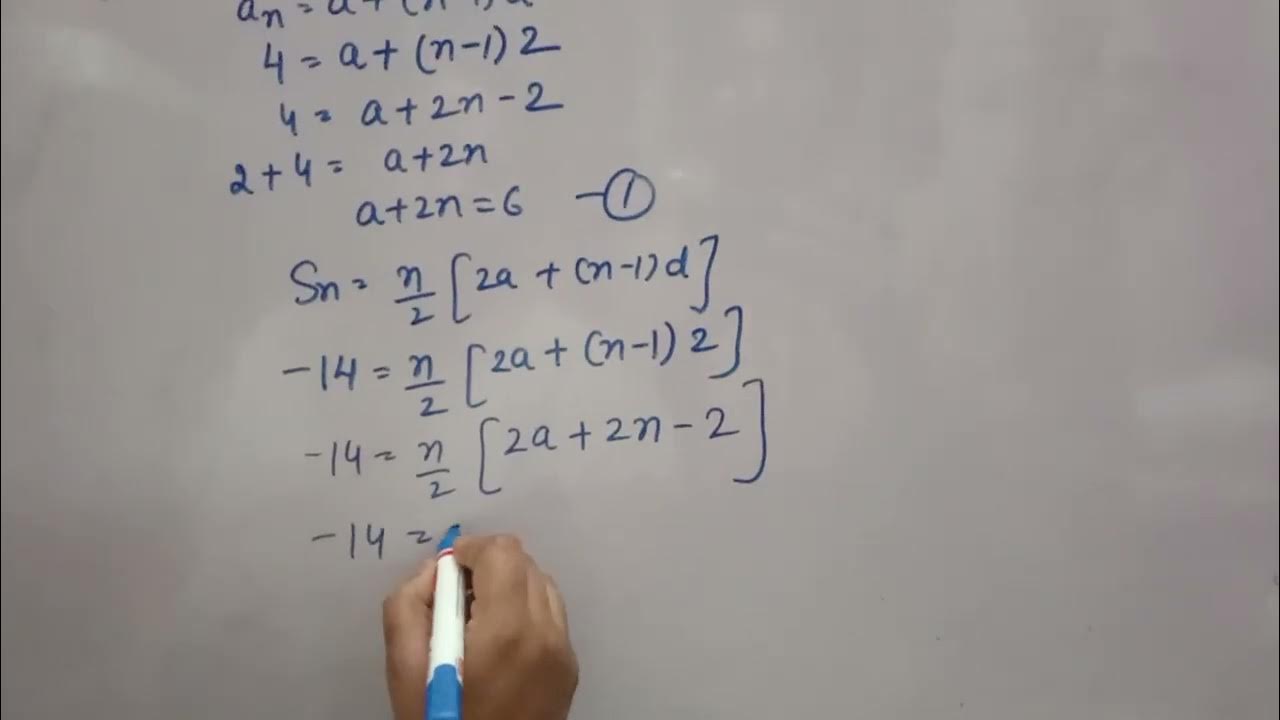 aₙ = a + (n-1)d
4 = a + (n-1) 2
4 = a + 2n - 2
2 + 4 = a + 2n
a + 2n = 6 - ①
Sn = n/2 [2a + (n-1) d]
-14 = n/2 [2a + (n-1) 2]
-14 = n/2 [2a + 2n - 2]
-14 =